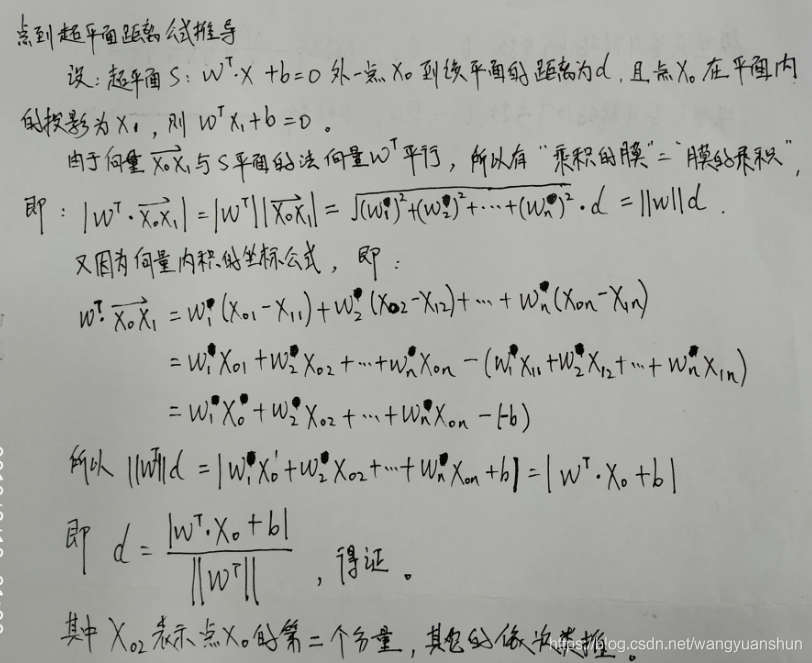 点到超平面距离公式推导
设：超平面S: W^T·X+b=0 外一点X₀到该平面的距离为d，且点X₀在平面内
的投影为X₁，则 W^T X₁+b=0。
由于向量 \overrightarrow{X₀X₁} 与S平面的法向量W^T平行，所以有“乘积的膜”=“膜的乘积”，
即：|W^T·\overrightarrow{X₀X₁}| = |W^T||\overrightarrow{X₀X₁}| = √((W₁)²+(W₂)²+…+(Wₙ)²)·d = ||W||d.
又因为向量内积的坐标公式，即：
W^T·\overrightarrow{X₀X₁} = W₁(X₀₁-X₁₁)+W₂(X₀₂-X₁₂)+…+Wₙ(X₀ₙ-X₁ₙ)
= W₁X₀₁+W₂X₀₂+…+WₙX₀ₙ-(W₁X₁₁+W₂X₁₂+…+WₙX₁ₙ)
= W₁X₀+W₂X₀₂+…+WₙX₀ₙ-(-b)
所以 ||W^T||d = |W₁X₀'+W₂X₀₂+…+WₙX₀ₙ+b| = |W^T·X₀+b|
即 d = |W^T·X₀+b| / ||W^T||，得证。
其中X₀₂表示点X₀的第二个分量，其它的依次类推。
https://blog.csdn.net/wangyuanshun